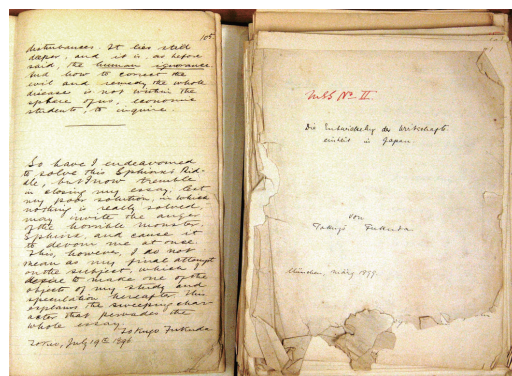 105
disturbances. It lies still
deeper, and it is, as before
said, the human ignorance
But how to correct the
evil and remedy the whole
disease is not within the
sphere of us, economic
students, to inquire.
So have I endeavoured
to solve this Sphinx's Rid-
dle, but I now tremble
in closing my essay, lest
my poor solution, in which
nothing is really solved,
may invite the anger
of the horrible monster,
Sphinx, and cause it
to devour me at once.
This, however, I do not
mean as my final attempt
on the subject, which I
desire to make one of the
objects of my study and
speculation hereafter. This
explains the sweeping char-
acter that pervades the
whole essay.
Tokuzo Fukuda
Tokio, July 19th 1896
MSS No II.
Die Entwickelung der Wirtschafts
einheit in Japan.
von
Tokuzo Fukuda.
München, März 1899.